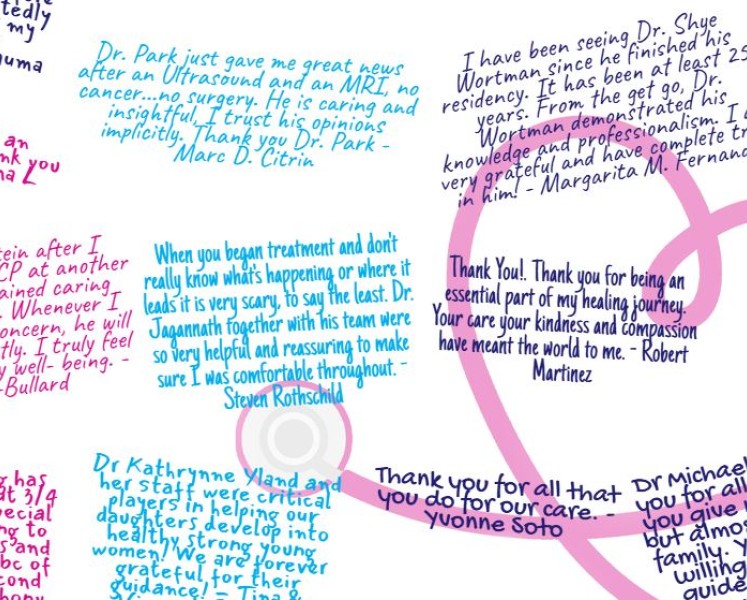 tedly
my
uma
Dr. Park just gave me great news
after an Ultrasound and an MRI, no
cancer...no surgery. He is caring and
insightful, I trust his opinions
implicitly. Thank you Dr. Park -
Marc D. Citrin
I have been seeing Dr. Shye
Wortman since he finished his
residency. It has been at least 25
years. From the get go, Dr.
Wortman demonstrated his
knowledge and professionalism. I
very grateful and have complete
in him! - Margarita M. Fernand
an
nk you
na L
tein after I
CP at another
ained caring
. Whenever I
oncern, he will
tly. I truly feel
y well- being. -
-Bullard
When you began treatment and don't
really know what's happening or where it
leads it is very scary, to say the least. Dr.
Jagannath together with his team were
so very helpful and reassuring to make
sure I was comfortable throughout. -
Steven Rothschild
Thank You!. Thank you for being an
essential part of my healing journey.
Your care your kindness and compassion
have meant the world to me. - Robert
Martinez
has
at 3/4
pecial
ng to
s and
bc of
cond
Dr Kathrynne Yland and
her staff were critical
players in helping our
daughters develop into
healthy strong young
women! We are forever
grateful for their
guidance! - Tina &
Thank you for all that
you do for our care. -
Yvonne Soto
Dr Michael
you for all
you give
but almos
family. Y
willing
guide